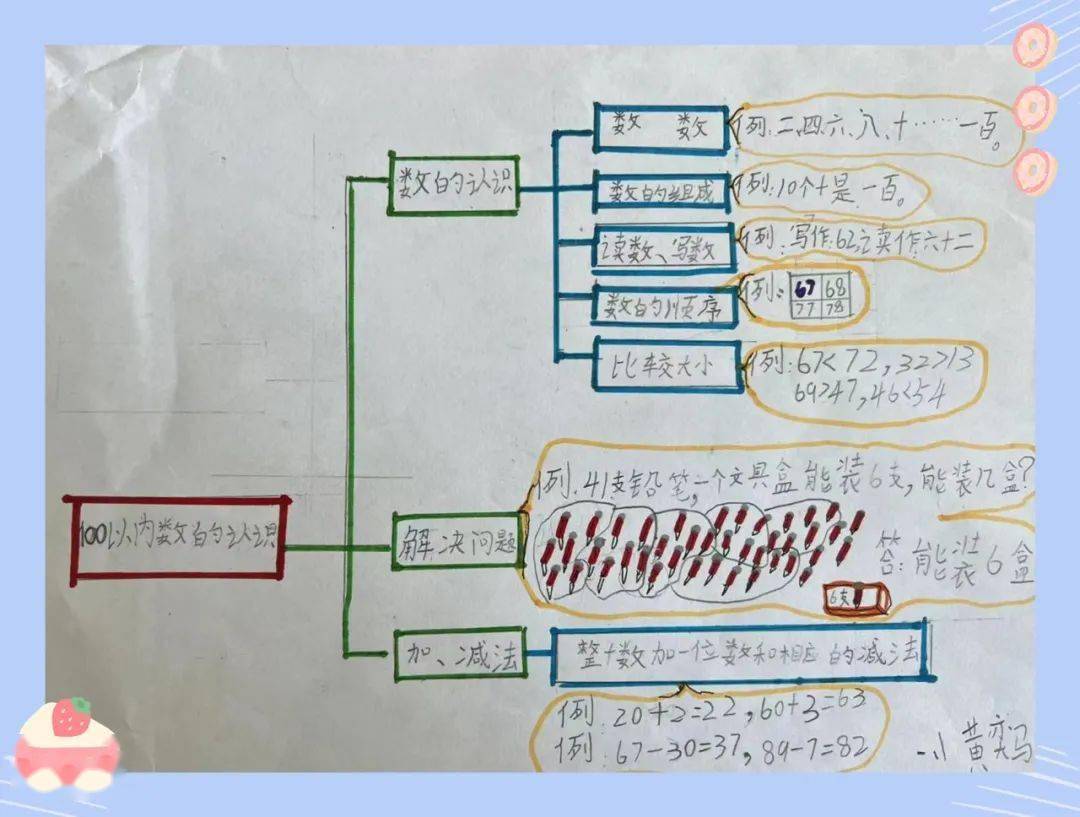 数的认识
数 数
例:二、四、六、八、十……一百。
数的组成
例:10个十是一百。
读数、写数
例:写作:62读作:六十二
数的顺序
例:
67 68
77 78
比较大小
例:67<72,32>13
69>47,46<54
100以内数的认识
解决问题
例:41支铅笔,一个文具盒能装6支,能装几盒?
答:能装6盒
6支
加、减法
整十数加一位数和相应的减法
例:20+2=22,60+3=63
例:67-30=37,89-7=82
一小 黄奕